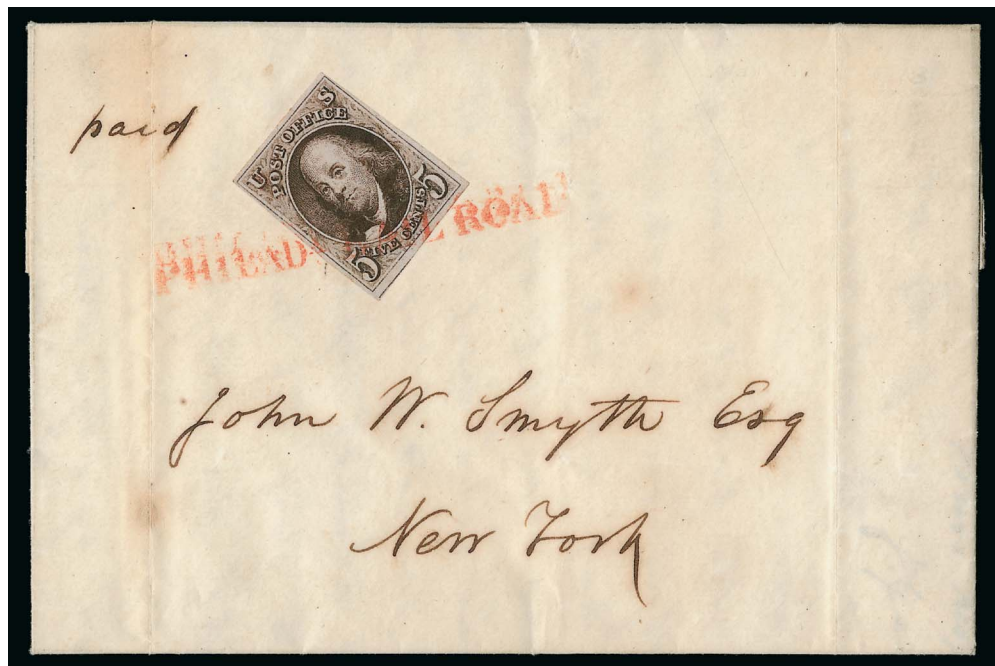 paid
U S
POST OFFICE
FIVE CENTS
5 5
PHILAD L ROAD
John W. Smyth Esq
New York